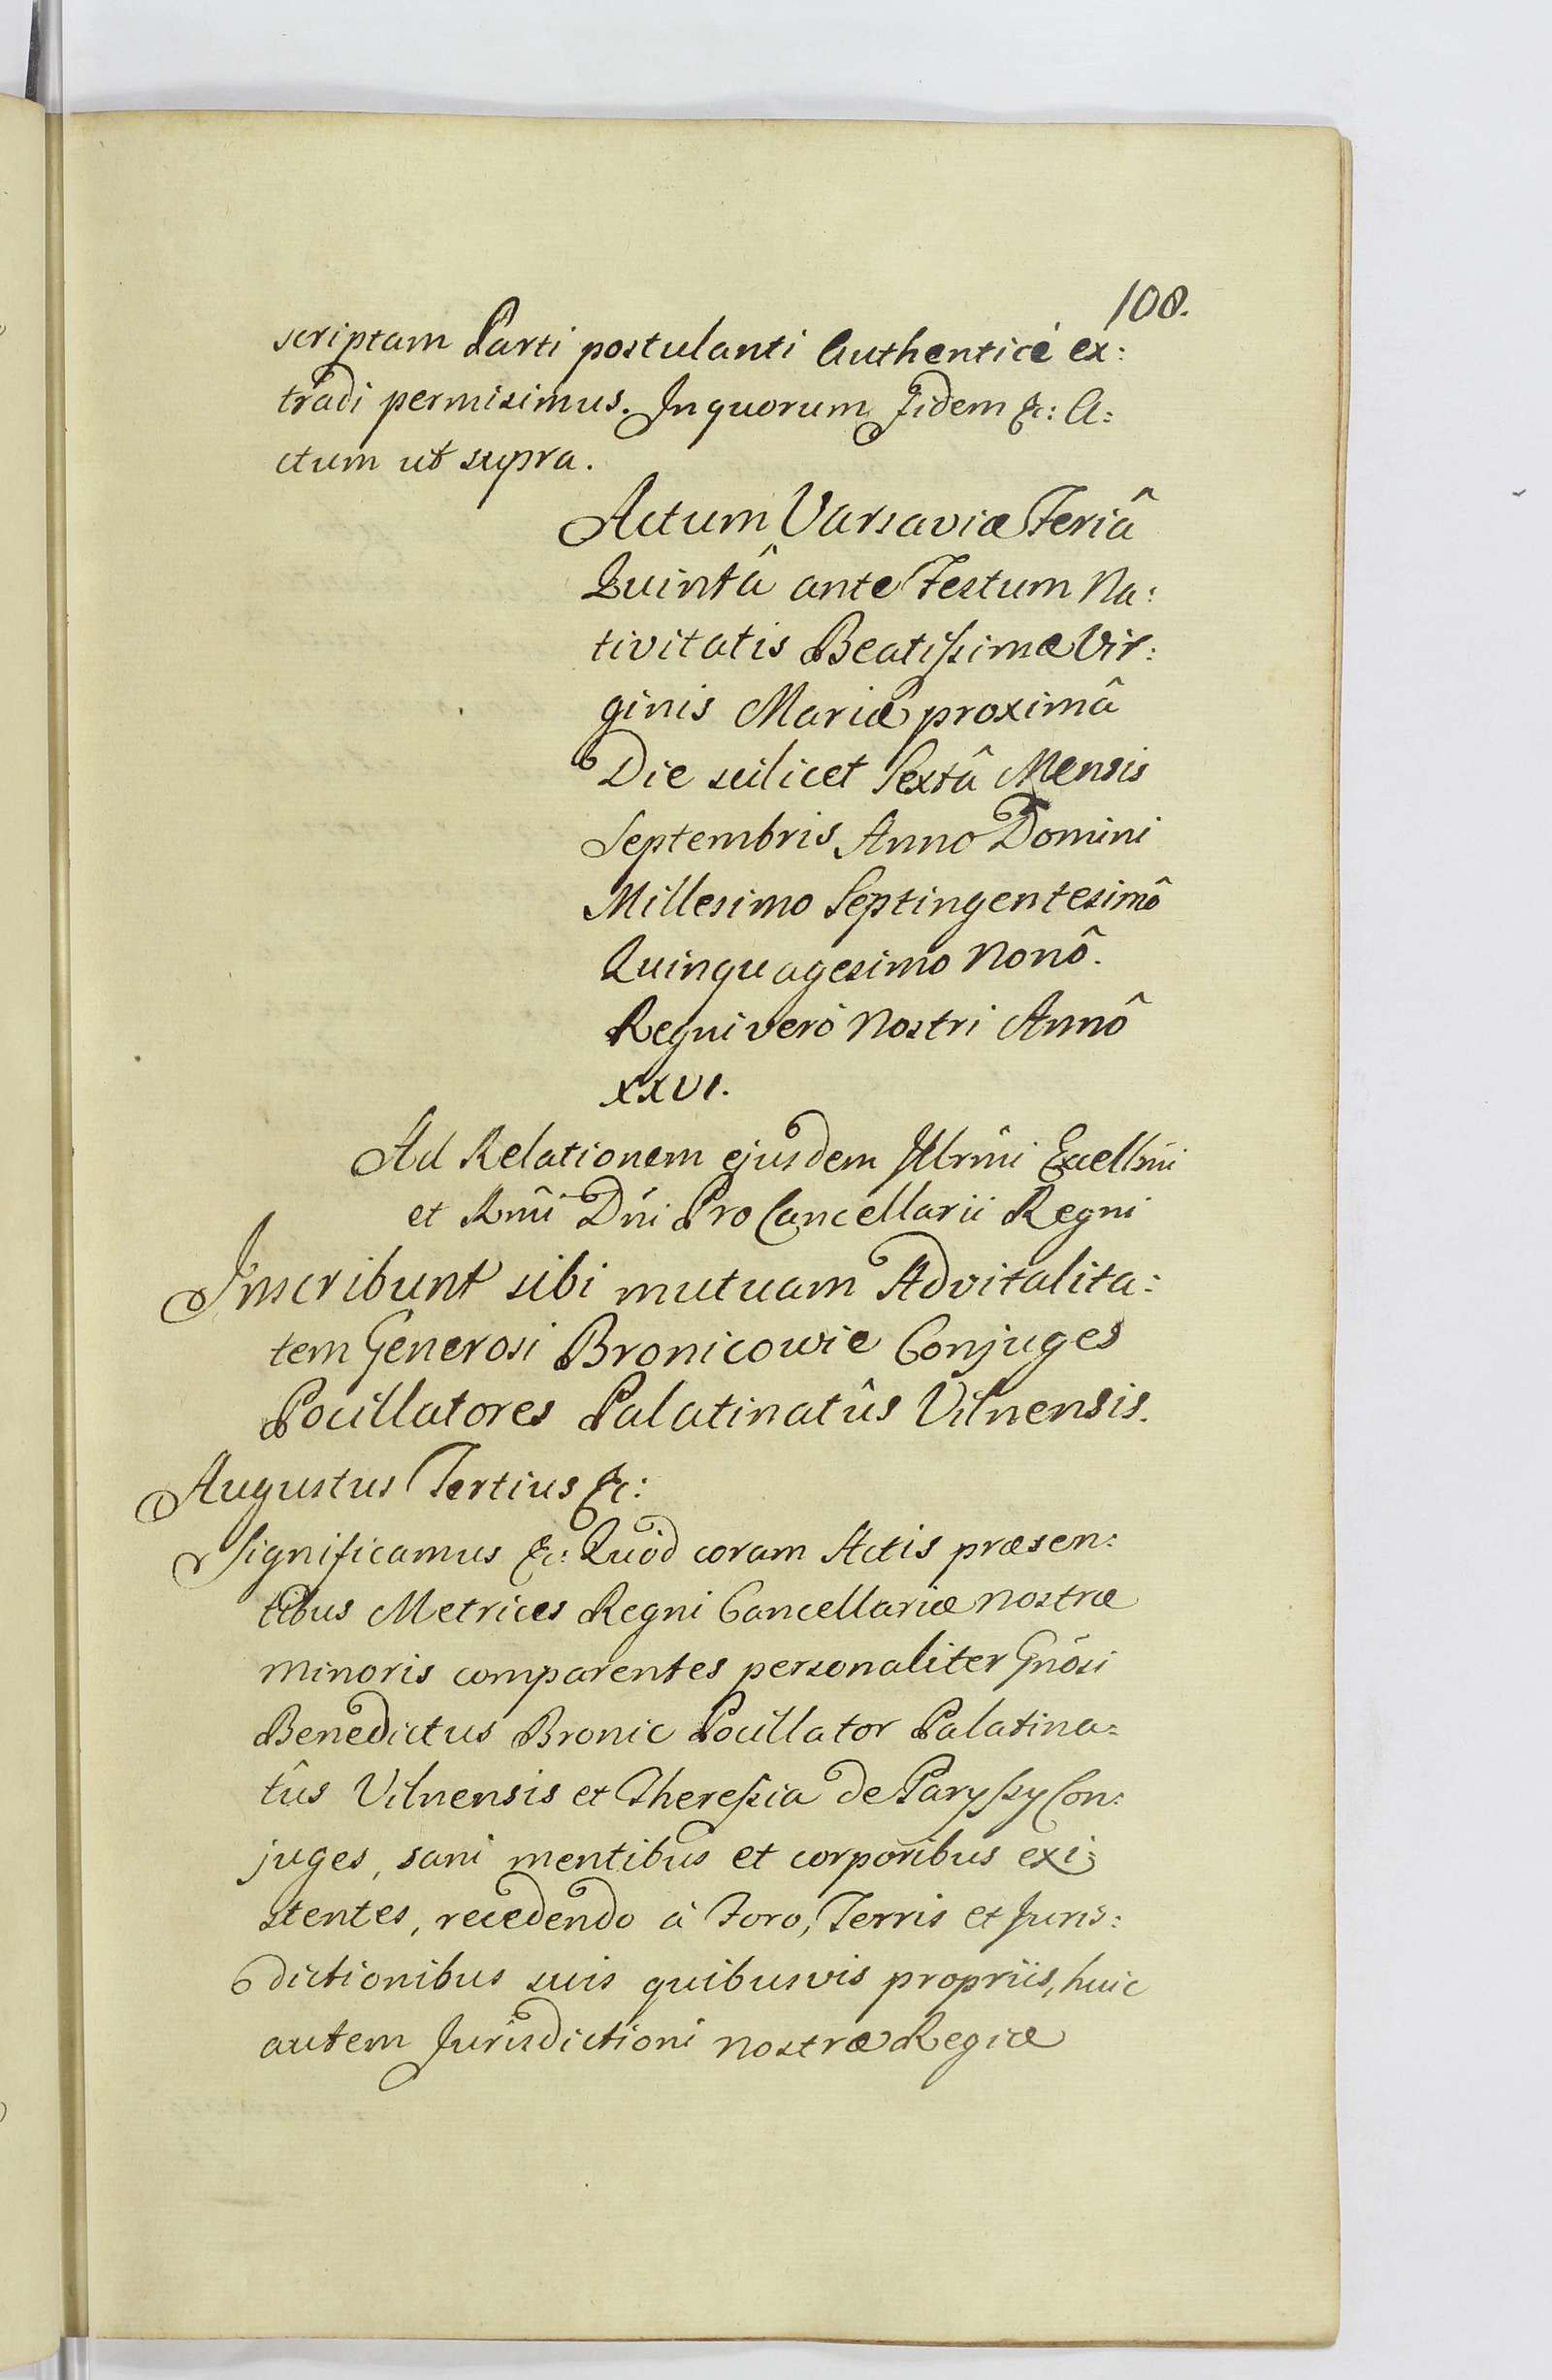 108.
scriptam Parti postulanti Authenticè ex:
tradi permisimus. In quorum fidem &c: A:
ctum ut supra.
Actum Varsaviæ Feriâ
Quintâ ante Festum Na:
tivitatis Beatissimæ Vir:
ginis Mariæ proximâ
Die scilicet Sextâ Mensis
Septembris Anno Domini
Millesimo Septingentesimô
Quinquagesimo Nonô.
Regni verò Nostri Annô
XXVI.
Ad Relationem ejusdem Illrm̃i Excellsm̃i
et Rm̃i Dñi Pro Cancellarii Regni
Inscribunt sibi mutuam Advitalita:
tem Generosi Bronicowie Conjuges
Pocillatores Palatinatûs Vilnensis.
Augustus Tertius &c:
Significamus &c: Quòd coram Actis præsen:
tibus Metrices Regni Cancellariæ Nostræ
Minoris comparentes personaliter Gñosi
Benedictus Bronic Pocillator Palatina:
tûs Vilnensis et Theressia de Paryssy Con:
juges, sani mentibus et corporibus exi:
stentes, recedendo à Foro, Terris et Juris:
dictionibus suis quibusvis propriis, huic
autem Jurisdictioni Nostræ Regiæ